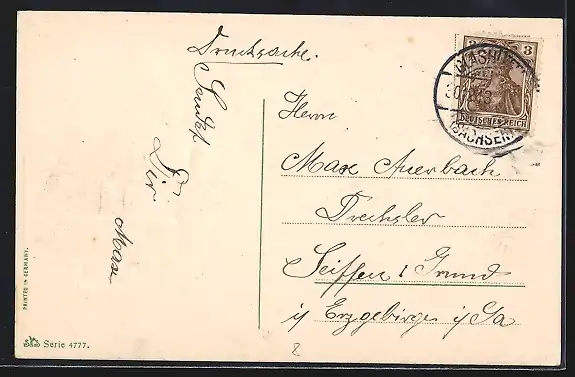 Drucksache.
Sendet
Dir
Max
Herrn
Max Auerbach
Drechsler
Seiffen i Grund
i/ Erzgebirge i/Sa
3 3
DEUTSCHES REICH
(SACHSEN)
PRINTED IN GERMANY.
Serie 4777.